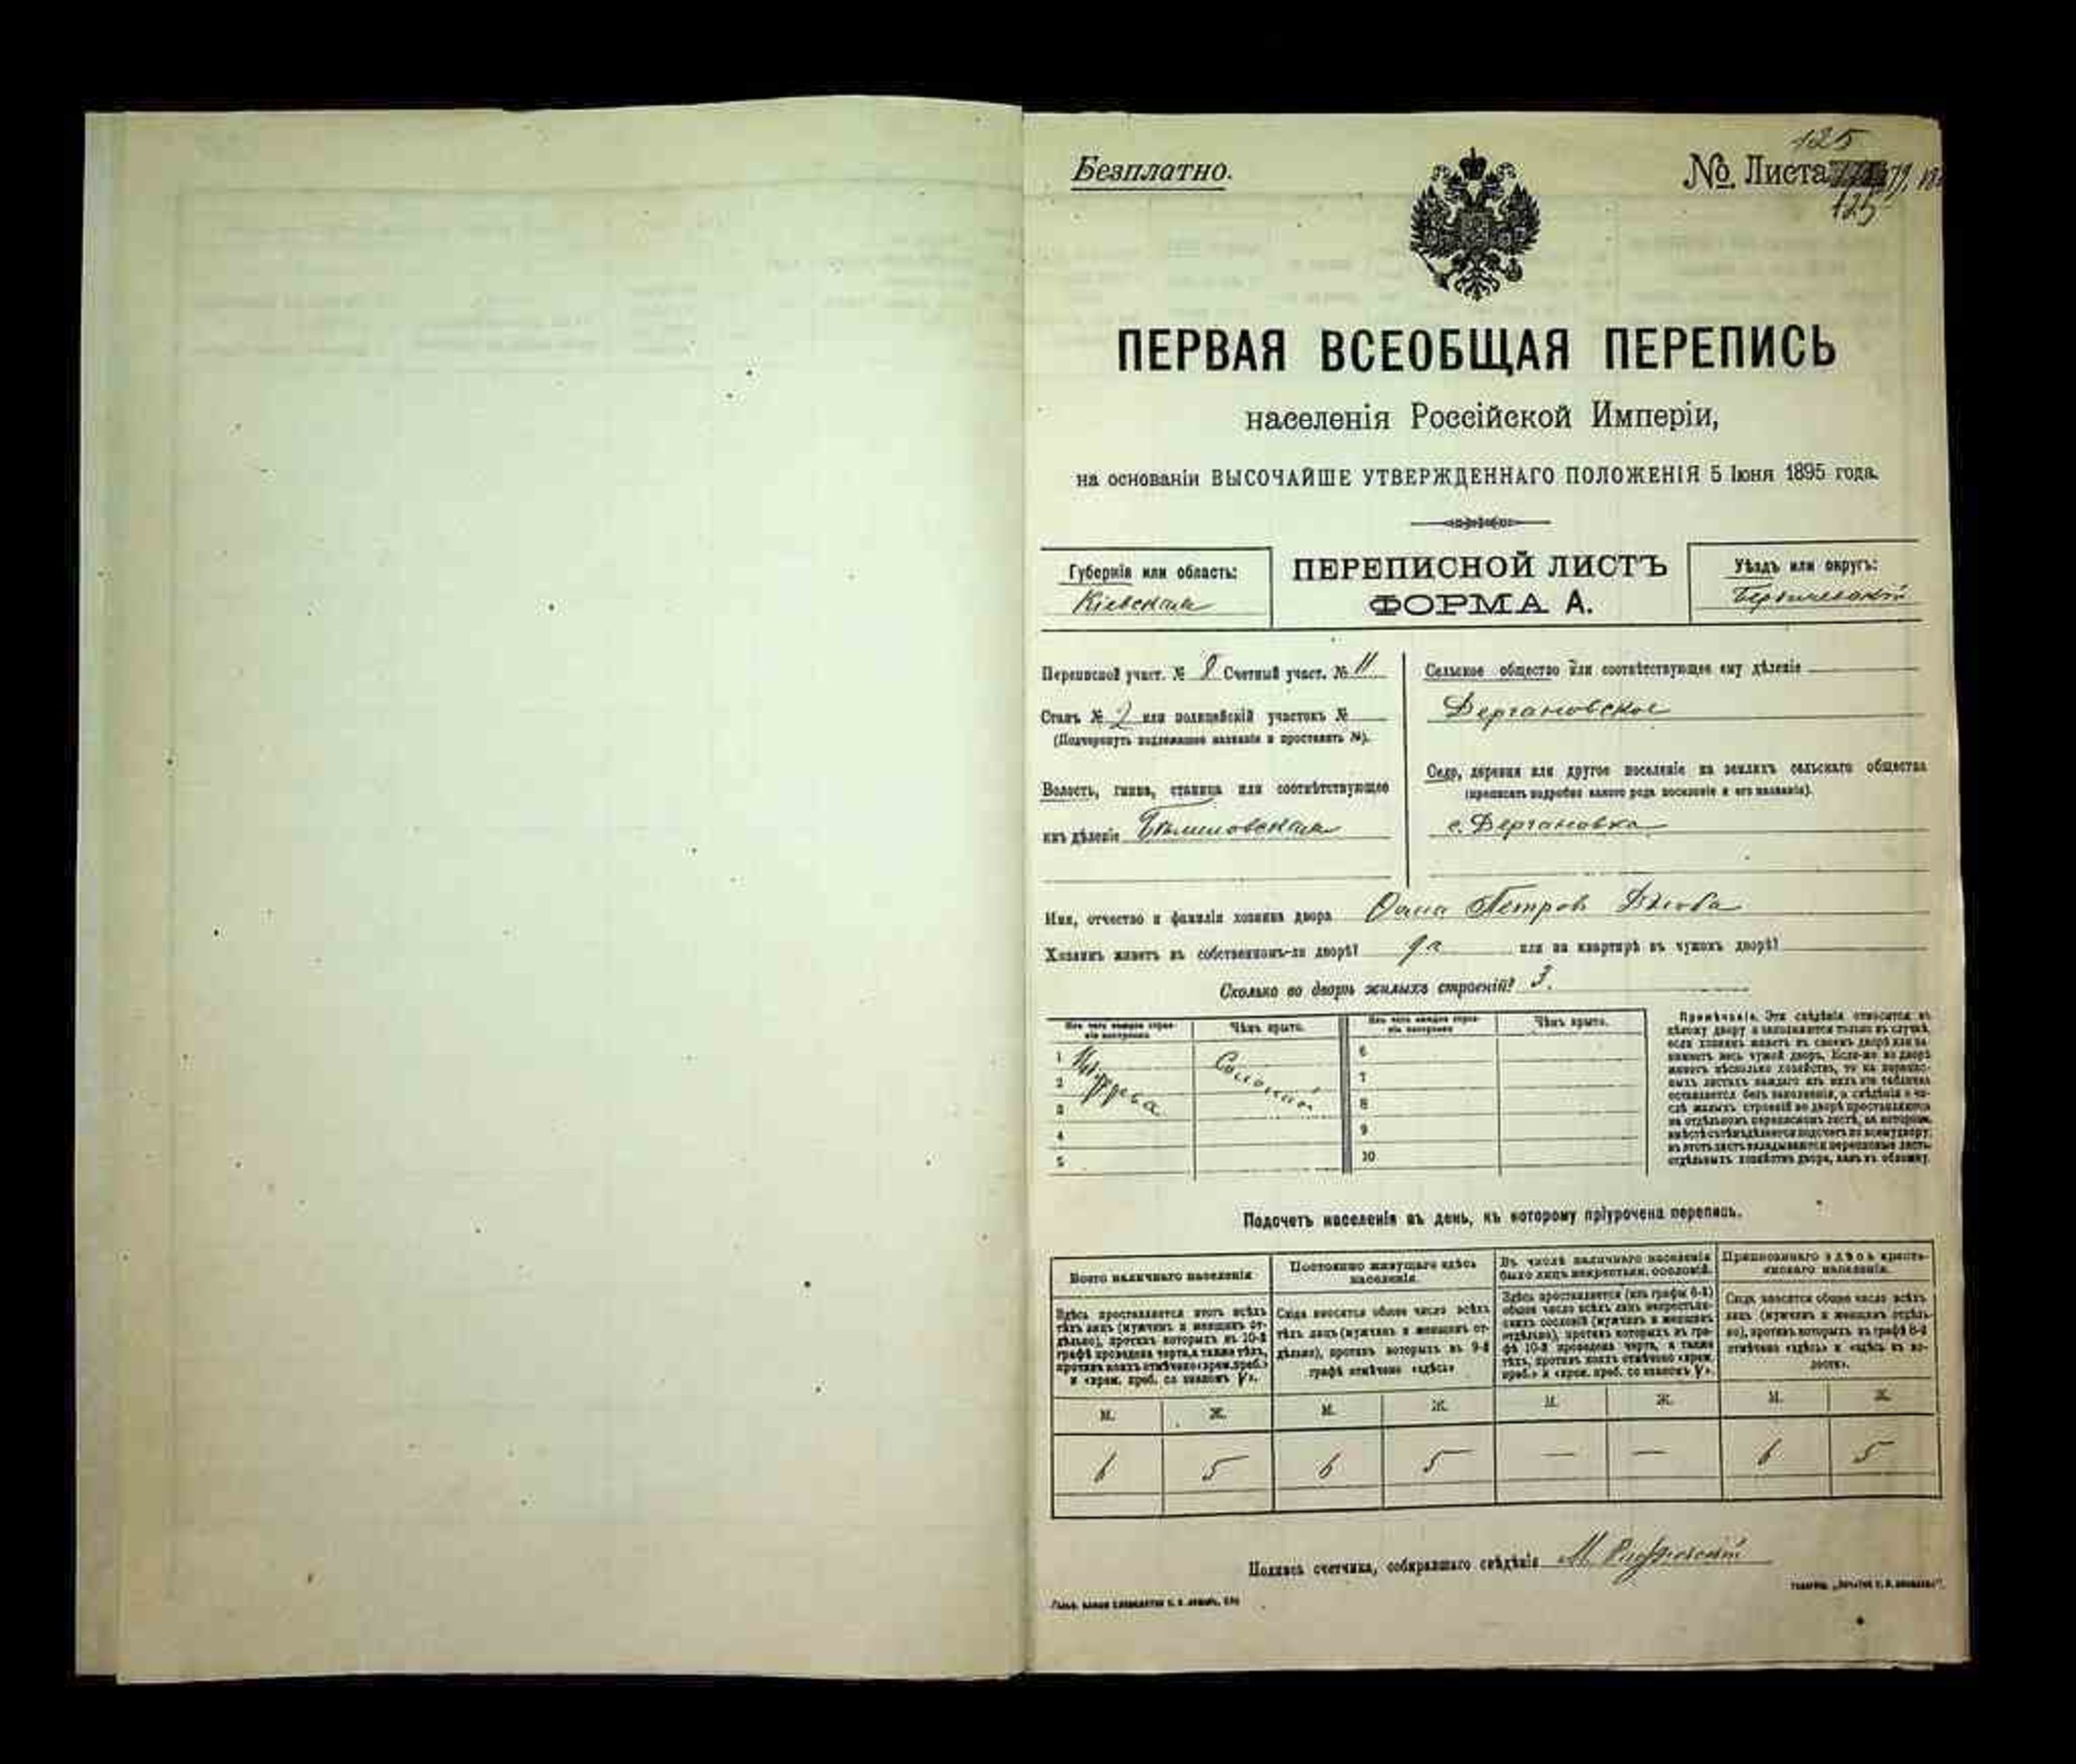 Безплатно.
125
№ Листа
125
ПЕРВАЯ ВСЕОБЩАЯ ПЕРЕПИСЬ
населенія Россійской Имперіи,
на основаніи ВЫСОЧАЙШЕ УТВЕРЖДЕННАГО ПОЛОЖЕНІЯ 5 Іюня 1895 года.
Губернія или область:
Кіевская
ПЕРЕПИСНОЙ ЛИСТЪ
ФОРМА А.
Уѣздъ или округъ:
Бердичевскій
Переписной участ. № 8 Счетный участ. № 11
Станъ № 2 или полицейскій участокъ №
(Подчеркнуть подлежащее названіе и проставить №).
Волость, гмина, станица или соотвѣтствующее
имъ дѣленіе
Сельское общество или соотвѣтствующее ему дѣленіе
Дергановское
Село, деревня или другое поселеніе на земляхъ сельскаго общества
(прописать подробно какого рода поселеніе и его названіе).
с. Дергановка
Имя, отчество и фамилія хозяина двора Петров
Хозяинъ живетъ въ собственномъ-ли дворѣ? да или на квартирѣ въ чужомъ дворѣ?
Сколько во дворѣ жилыхъ строеній? 3.
Изъ чего каждое строеніе построено Чѣмъ крыто. Изъ чего каждое строеніе построено Чѣмъ крыто.
1 6
2 7
3 8
4 9
5 10
Изъ дерева
Соломой
Примѣчаніе. Эти свѣдѣнія относятся къ
цѣлому двору и заполняются только въ случаѣ,
если хозяинъ живетъ въ своемъ дворѣ или за-
нимаетъ весь чужой дворъ. Если-же во дворѣ
живетъ нѣсколько хозяйствъ, то на перепис-
ныхъ листахъ каждаго изъ нихъ эта табличка
оставляется безъ заполненія, а свѣдѣнія о чи-
слѣ жилыхъ строеній во дворѣ проставляются
на отдѣльномъ переписномъ листѣ, на которомъ
вмѣстѣ съ тѣмъ дѣлается подсчетъ по всему двору;
въ этотъ листъ вкладываются переписные листы
отдѣльныхъ хозяйствъ двора, какъ въ обложку.
Подсчетъ населенія въ день, къ которому пріурочена перепись.
Всего наличнаго населенія
Здѣсь проставляется итогъ всѣхъ
тѣхъ лицъ (мужчинъ и женщинъ от-
дѣльно), противъ которыхъ въ 10-й
графѣ проведена черта, а также тѣхъ,
противъ коихъ отмѣчено «врем. преб.»
и «врем. преб. со знакомъ V».
Постоянно живущаго здѣсь
населенія.
Сюда вносится общее число всѣхъ
тѣхъ лицъ (мужчинъ и женщинъ от-
дѣльно), противъ которыхъ въ 9-й
графѣ отмѣчено «здѣсь»
Въ числѣ наличнаго населенія
было лицъ некрестьян. сословій.
Здѣсь проставляется (изъ графы 6-й)
общее число всѣхъ лицъ некрестьян-
скихъ сословій (мужчинъ и женщинъ
отдѣльно), противъ которыхъ въ гра-
фѣ 10-й проведена черта, а также
тѣхъ, противъ коихъ отмѣчено «врем.
преб.» и «врем. преб. со знакомъ V».
Приписаннаго здѣсь кресть-
янскаго населенія.
Сюда вносится общее число всѣхъ
лицъ (мужчинъ и женщинъ отдѣль-
но), противъ которыхъ въ графѣ 8-й
отмѣчено «здѣсь» и «здѣсь въ во-
лости».
М. Ж. М. Ж. М. Ж. М. Ж.
6 5 6 5 — — 6 5
Подпись счетчика, собиравшаго свѣдѣнія